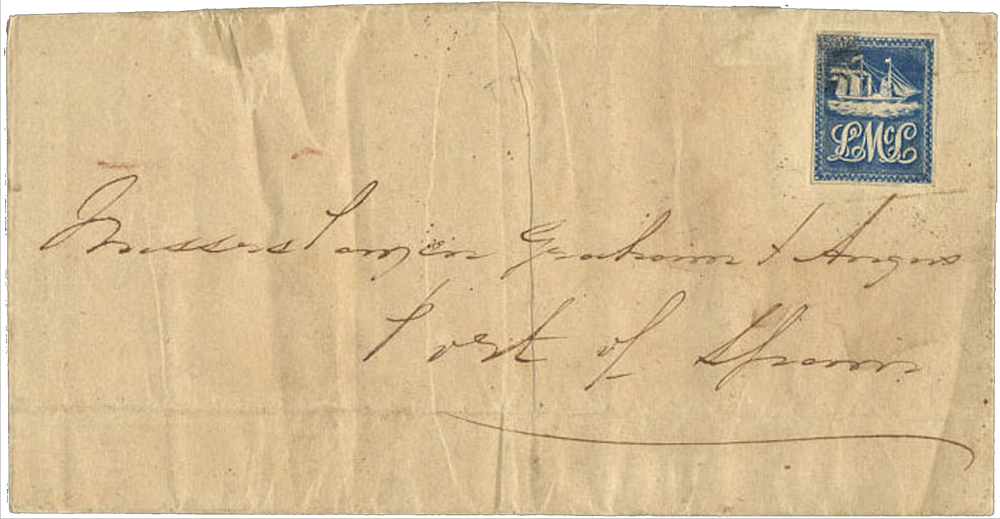 LMcL
Messrs Taryer Graham & Angus
Port of Spain